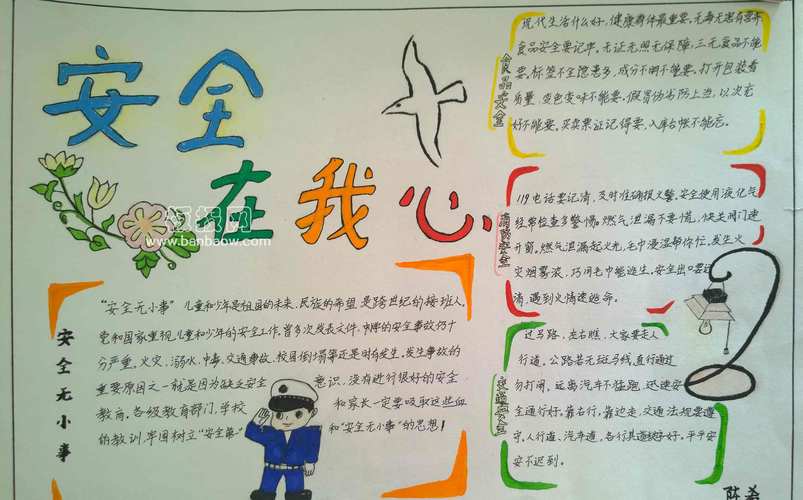 安全
在我心
板报网
www.banbaow.com
安全无小事
"安全无小事"儿童和少年是祖国的未来、民族的希望,是跨世纪的接班人。
党和国家重视儿童和少年的安全工作,曾多次发表文件,中的安全事故仍十
分严重。火灾、溺水、中毒、交通事故、校园倒塌等还是时有发生。发生事故的
重要原因之一就是因为缺乏安全意识,没有进行很好的安全
教育。各级教育部门、学校和家长一定要吸取这些血
的教训,牢固树立"安全第一"和"安全无小事"的思想!
食品安全
现代生活什么好,健康群体最重要,无毒无害有营养
食品安全要记牢。无证无照无保障,三无食品不能
要。标签不全隐患多,成分不明不能要。打开包装看
质量,变色变味不能要。假冒伪劣防上当,以次充
好不能要。买卖票证记得要,入库台帐不能忘。
消防安全
119电话要记清,及时准确报火警。安全使用液化气
经常检查多警惕。燃气泄漏不要慌,快关阀门速
开窗。燃气泄漏起火光,毛巾浸湿帮你忙。发生火
灾烟雾浓,巧用毛巾能逃生。安全出口要记
清,遇到火情速逃命。
交通安全
过马路,左右瞧,大家要走人
行道。公路若无斑马线,直行通过
勿打闹。远离汽车不猛跑,迅速安
全通行好。靠右行,靠边走,交通法规要遵
守。人行道,汽车道,各行其道秩序好。平平安
安不迟到。
陈